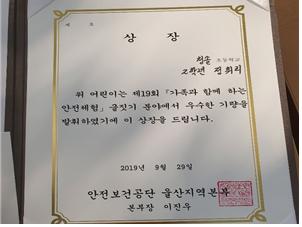 제 호
상 장
청솔 초등학교
2학년 정희리
위 어린이는 제19회 『가족과 함께 하는
안전체험』 글짓기 분야에서 우수한 기량을
발휘하였기에 이 상장을 드립니다.
2019년 9월 29일
안전보건공단 울산지역본부
본부장 이진우